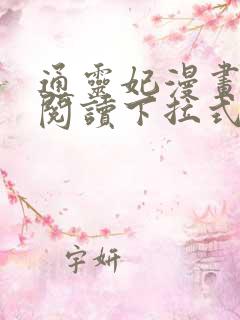 通靈妃漫畫
閱讀下拉式
宇妍